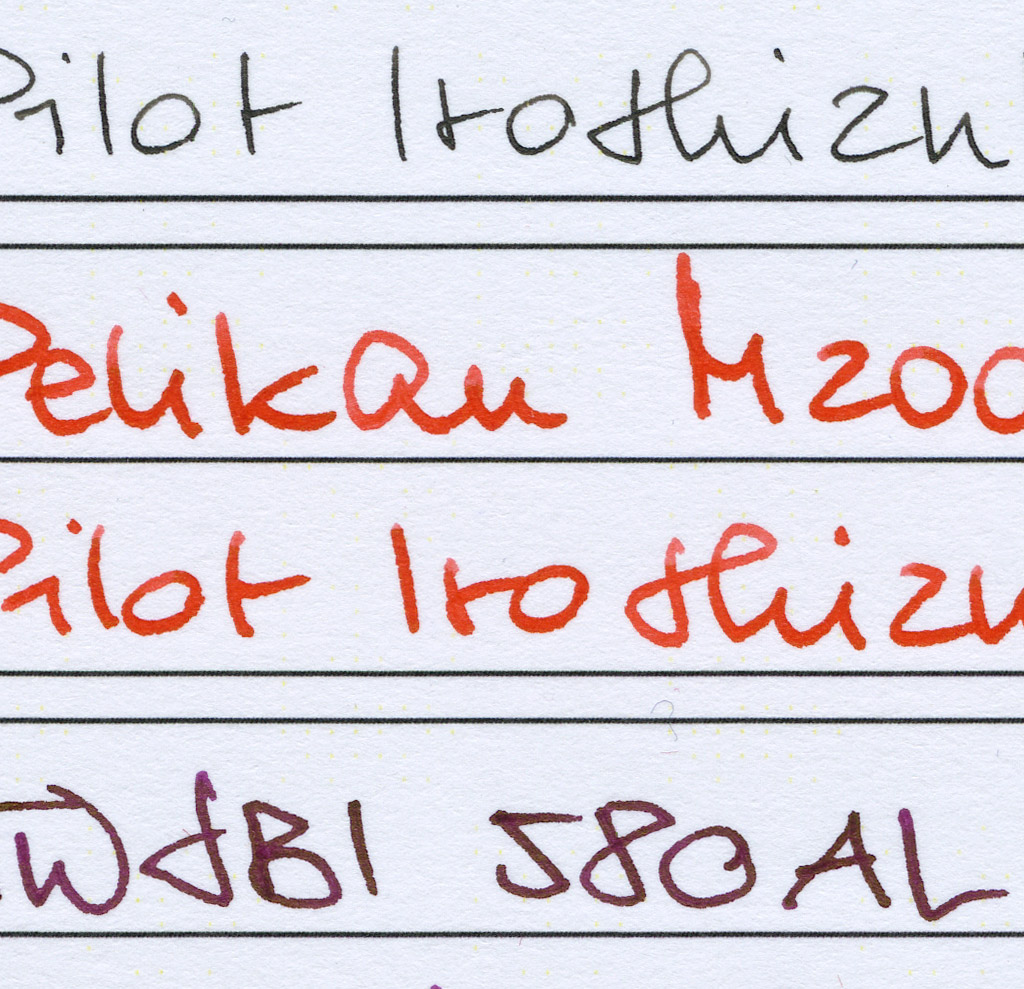 Pilot Iroshizu
Pelikan M200
Pilot Iroshizu
TWSBI 580AL